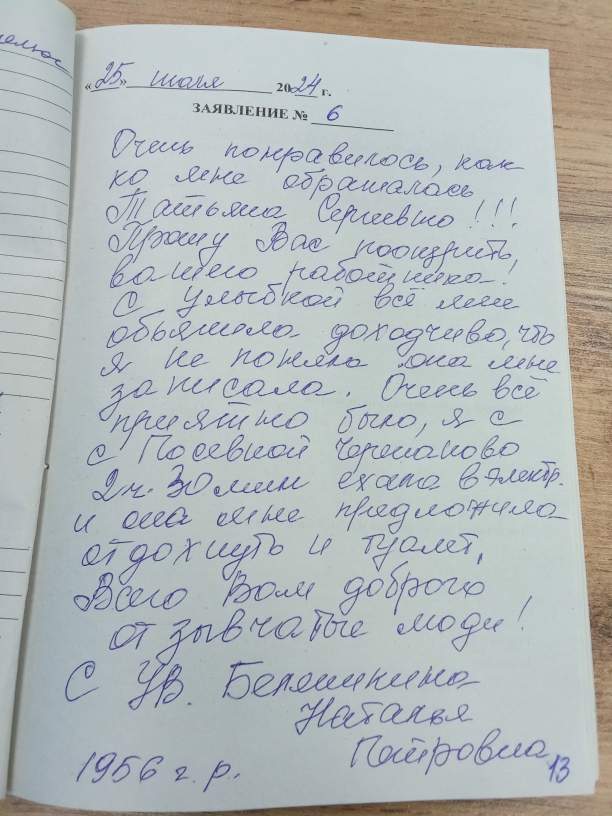 «25» июля 2024 г.
ЗАЯВЛЕНИЕ № 6
Очень понравилось, как
ко мне обращалась
Татьяна Сергиевно!!!
Прошу Вас поощрить,
вашего работника!
С улыбкой всё мне
обьяснила доходчиво, что
я не поняла она мне
записала. Очень всё
приятно было, я с
с Посевной Черепаново
2ч. 30 мин ехала в электр.
и она мне предложила
отдохнуть и туалет,
Всего Вам доброго
отзывчатые люди!
С Ув.
Наталья
Петровна
1956 г. р.
13